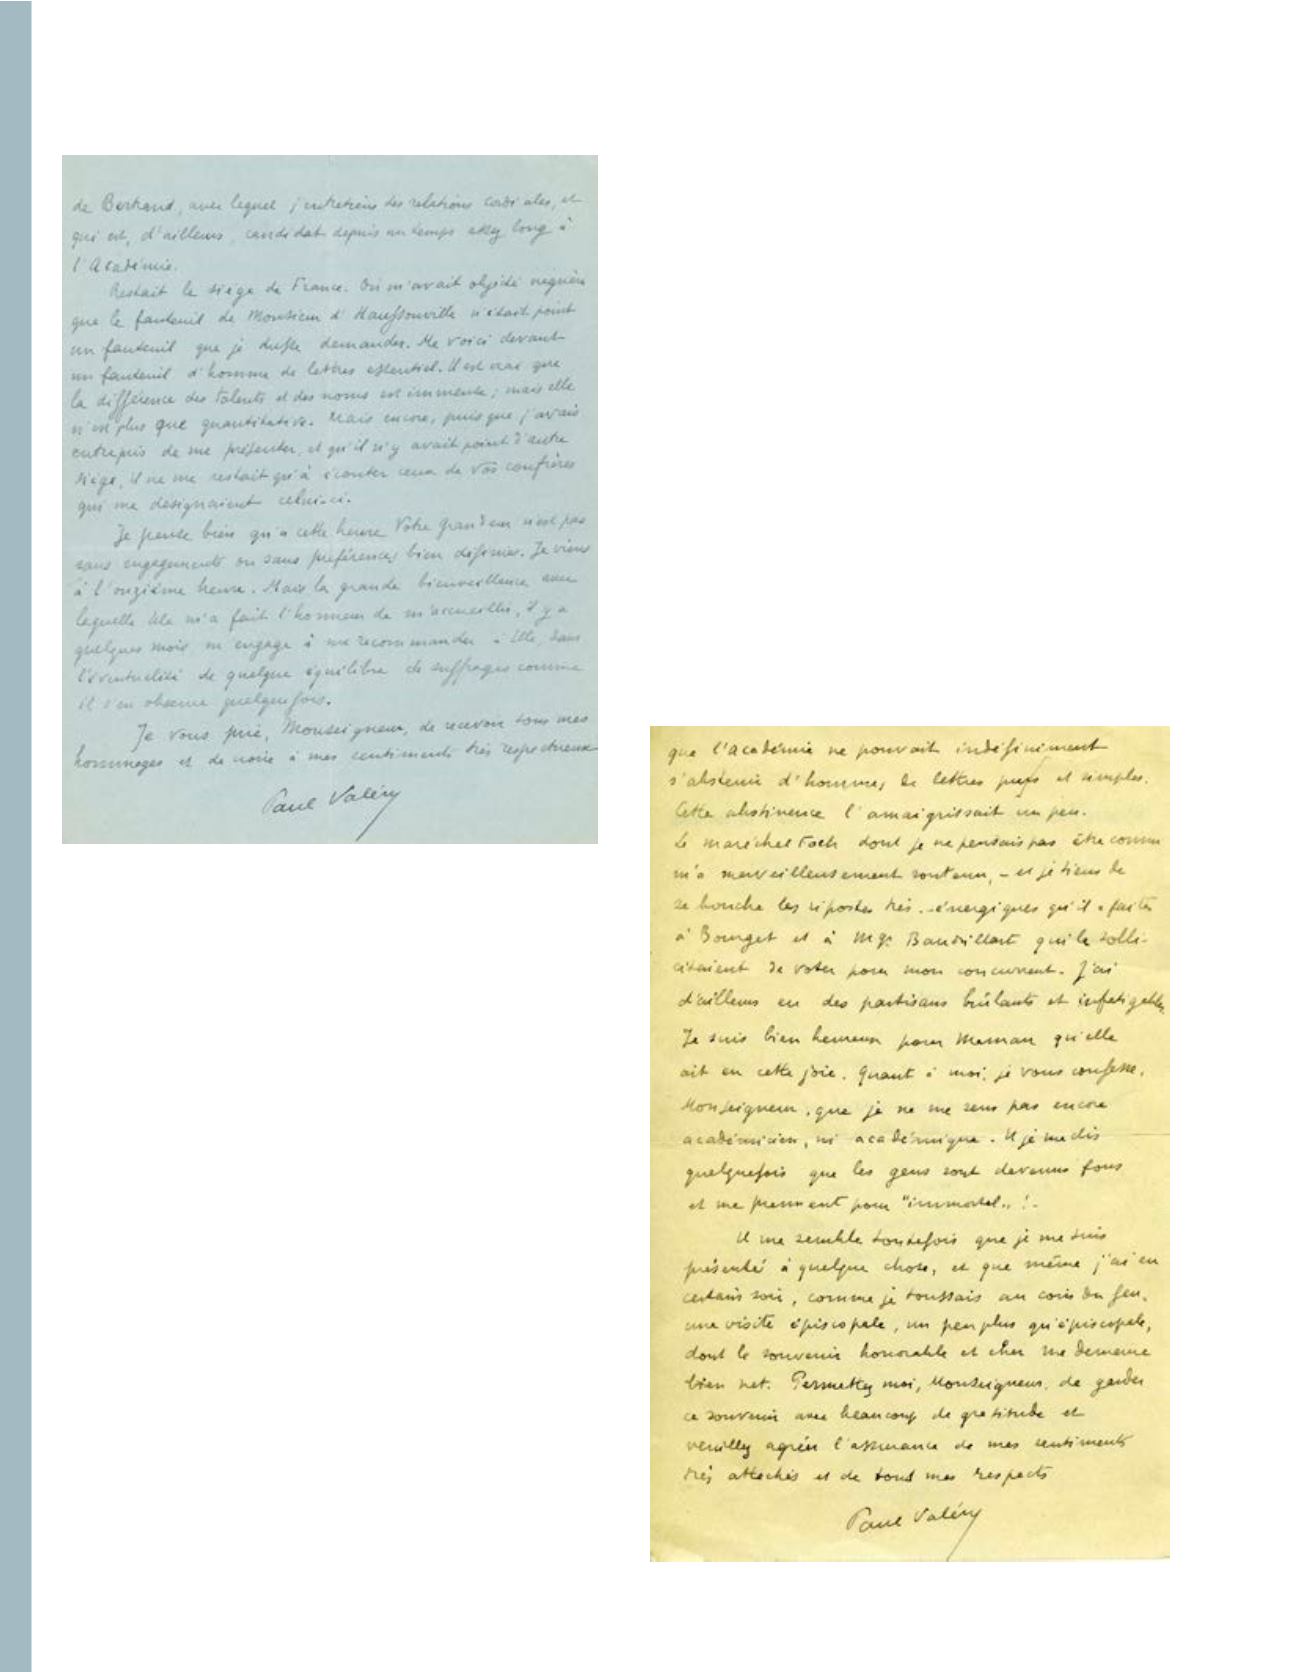 de Bertrand, avec lequel j'entretiens des relations cordiales, et
qui est, d'ailleurs, candidat depuis un temps assez long à
l'Académie.
Restait le siège de France. On m'avait objecté naguère
que le fauteuil de Monsieur d'Haussonville n'était point
un fauteuil que je dusse demander. Me voici devant
un fauteuil d'homme de lettres essentiel. Il est vrai que
la différence des talents et des noms est immense ; mais elle
n'est plus que quantitative. Mais encore, puisque j'avais
entrepris de me présenter, et qu'il n'y avait point d'autre
siège, il ne me restait qu'à écouter ceux de vos confrères
qui me désignaient celui-ci.
Je pense bien qu'à cette heure Votre Grandeur n'est pas
sans engagements ou sans préférences bien définies. Je viens
à l'onzième heure. Mais la grande bienveillance avec
laquelle Elle m'a fait l'honneur de m'accueillir, il y a
quelques mois m'engage à me recommander à Elle, dans
l'éventualité de quelque équilibre de suffrages comme
il s'en observe quelquefois.
Je vous prie, Monseigneur, de recevoir tous mes
hommages et de croire à mes sentiments très respectueux
Paul Valéry
que l'académie ne pouvait indéfiniment
s'abstenir d'hommes de lettres purs et simples.
Cette abstinence l'amaigrissait un peu.
Le maréchal Foch dont je ne pensais pas être connu
m'a merveilleusement soutenu, - et je tiens de
sa bouche les ripostes très énergiques qu'il a faites
à Bourget et à Mgr Baudrillart qui le solli-
citaient de voter pour mon concurrent. J'ai
d'ailleurs eu des partisans brûlants et infatigables.
Je suis bien heureux pour Maman qu'elle
ait eu cette joie. Quant à moi, je vous confesse,
Monseigneur, que je ne me sens pas encore
académicien, ni académique. Et je me dis
quelquefois que les gens sont devenus fous
et me prennent pour "immortel" !
Il me semble toutefois que je me suis
présenté à quelque chose, et que même j'ai eu
certain soir, comme je toussais au coin du feu,
une visite épiscopale, un peu plus qu'épiscopale,
dont le souvenir honorable et cher me demeure
bien net. Permettez moi, Monseigneur, de garder
ce souvenir avec beaucoup de gratitude et
veuillez agréer l'assurance de mes sentiments
très attachés et de tous mes respects
Paul Valéry